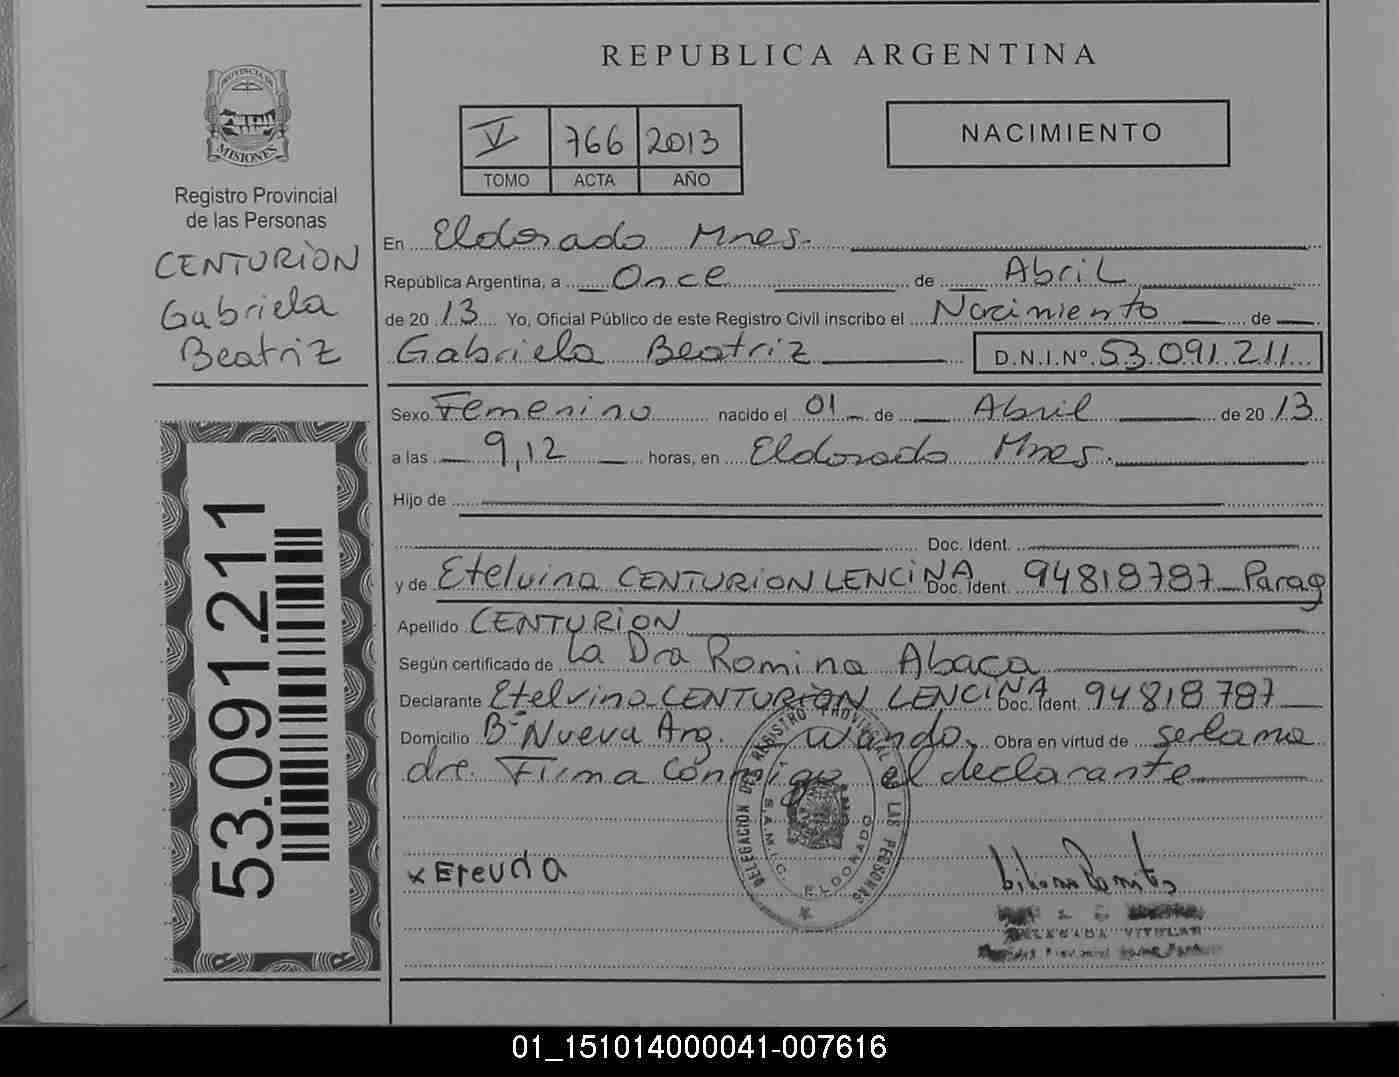 REPUBLICA ARGENTINA
PROVINCIA DE
MISIONES
Registro Provincial
de las Personas
CENTURIÓN
Gabriela
Beatriz
V 766 2013
TOMO ACTA AÑO
NACIMIENTO
En Eldorado Mnes.
República Argentina, a Once de Abril
de 2013 Yo, Oficial Público de este Registro Civil inscribo el Nacimiento de
Gabriela Beatriz D.N.I.Nº 53.091.211
Sexo Femenino nacido el 01 de Abril de 2013
a las 9,12 horas, en Eldorado Mnes.
Hijo de
Doc. Ident.
y de Etelvina CENTURIÓN LENCINA Doc. Ident. 94818787 Parag
Apellido CENTURIÓN
Según certificado de La Dra Romina Abaca
Declarante Etelvina CENTURIÓN LENCINA Doc. Ident 94818787
Domicilio Bº Nueva Arg. Wanda. Obra en virtud de ser la ma
dre. Firma conmigo el declarante
DELEGACION DEL REGISTRO PROVINCIAL DE LAS PERSONAS
S.A.M.I.C. ELDORADO
53.091.211
01_151014000041-007616